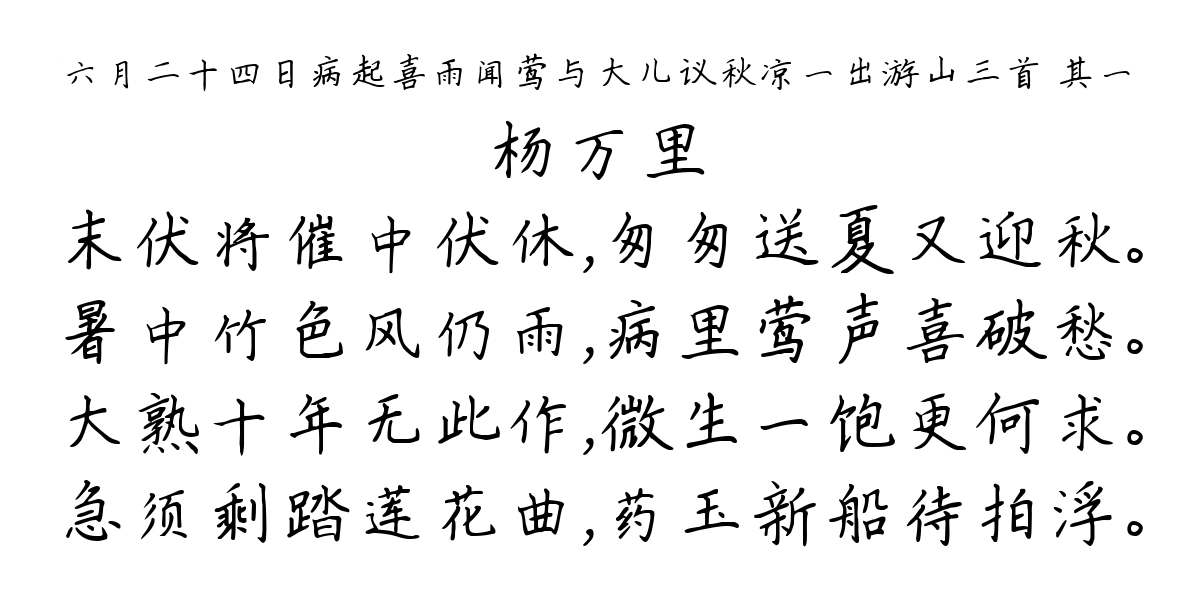 六月二十四日病起喜雨闻莺与大儿议秋凉一出游山三首 其一
杨万里
末伏将催中伏休,匆匆送夏又迎秋。
暑中竹色风仍雨,病里莺声喜破愁。
大熟十年无此作,微生一饱更何求。
急须剩踏莲花曲,药玉新船待拍浮。